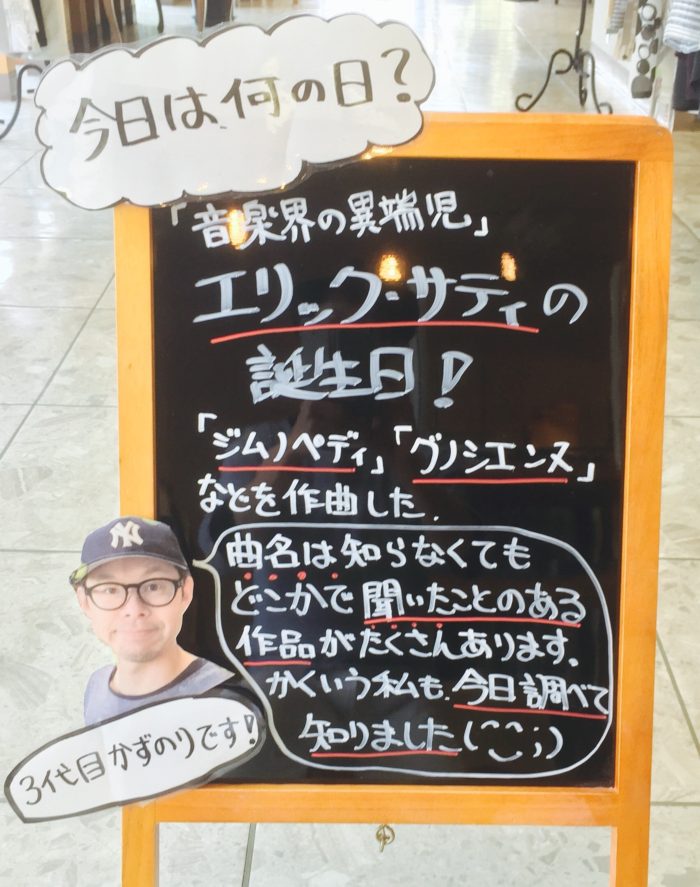 今日は何の日?
「音楽界の異端児」
エリック・サティの
誕生日!
「ジムノペディ」「グノシエンヌ」
などを作曲した.
曲名は知らなくても
どこかで聞いたことのある
作品がたくさんあります.
かくいう私も.今日調べて
知りました(^^;)
NY
3代目かずのりです!